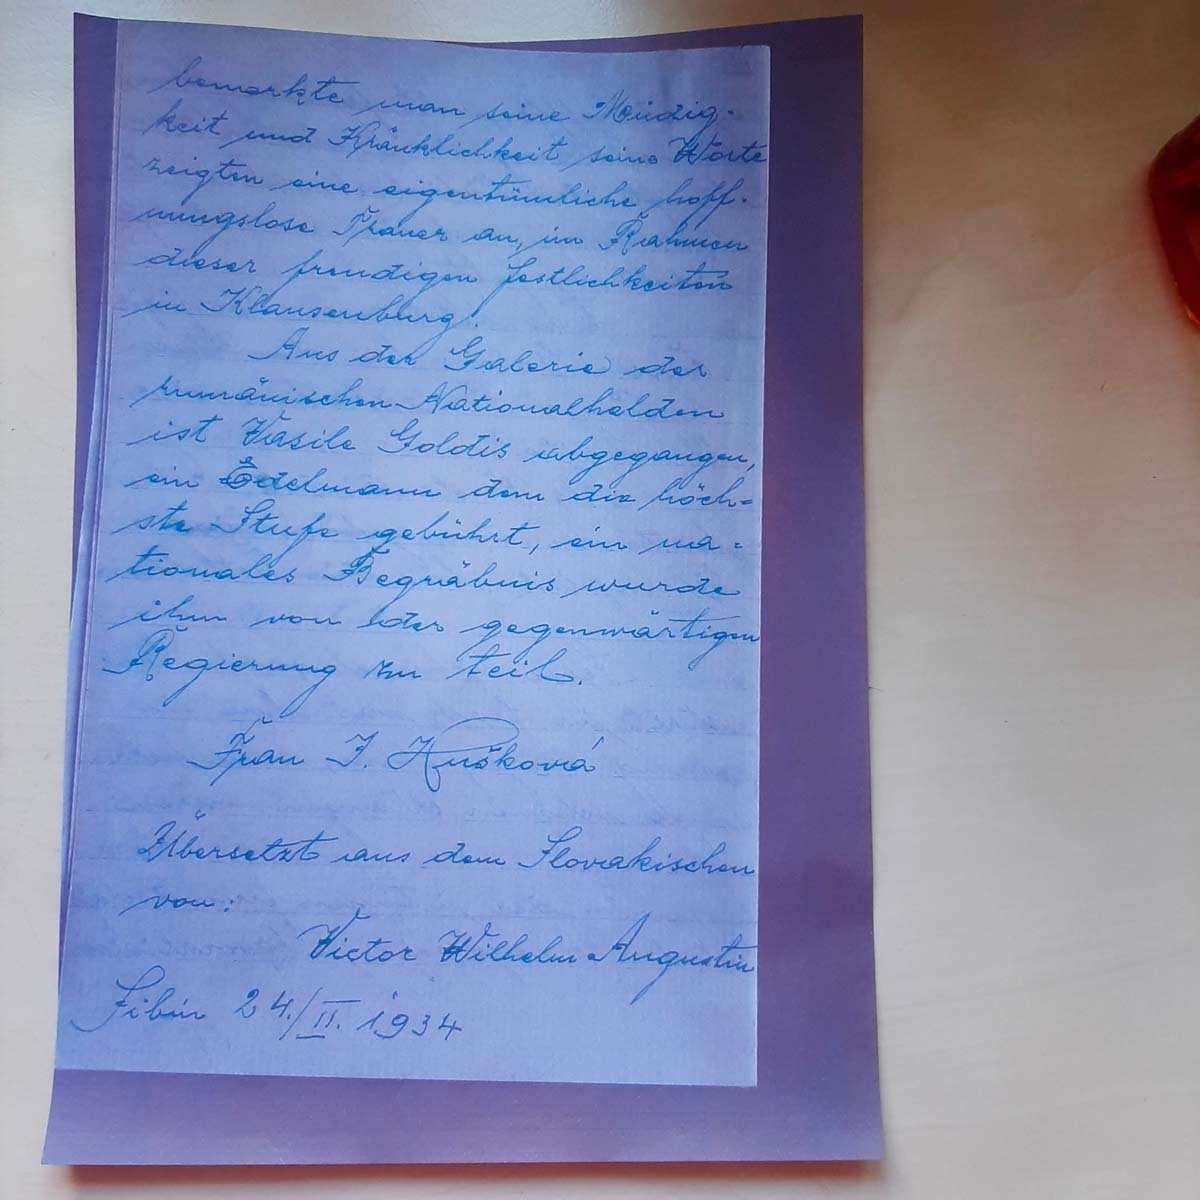 bemerkte man seine Meudig-
keit und Kränklichkeit seine Worte
zeigten eine eigentümliche hoff-
nungslose Trauer an, im Rahmen
dieser freudigen Festlichkeiten
in Klausenburg.
Aus der Galerie der
rumänischen Nationalhelden
ist Vasile Goldis abgegangen,
ein Edelmann dem die höch-
ste Stufe gebührt, ein na-
tionales Begräbnis wurde
ihm von der gegenwärtigen
Regierung zu teil.
Frau I. Hušková
Übersetzt aus dem Slovakischen
von:
Victor Wilhelm Augustin
Sibiu 24./II. 1934